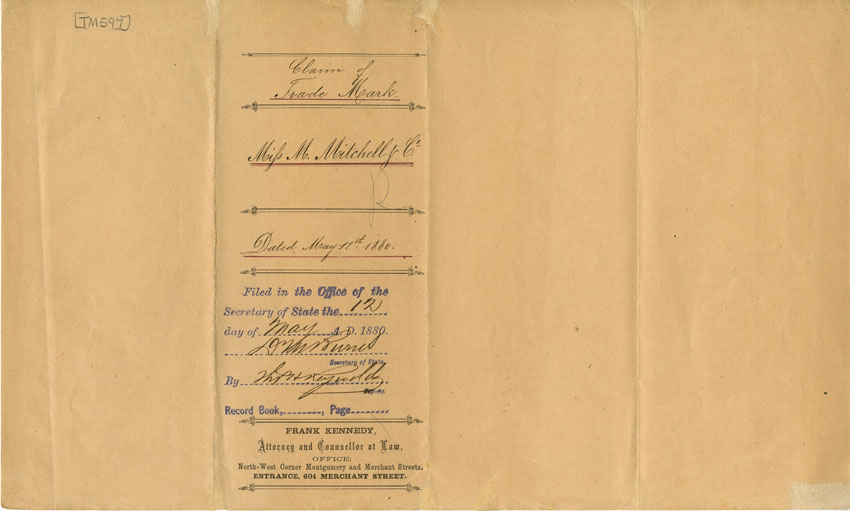 [TM597]
Claim of
Trade Mark.
Miss M. Mitchell & Co
R
Dated, May 11th 1880.
Filed in the Office of the
Secretary of State the 12
day of May A.D. 1880.
Burns
Secretary of State
By Reynolds
Deputy.
Record Book, , Page
FRANK KENNEDY,
Attorney and Counsellor at Law,
OFFICE:
North-West Corner Montgomery and Merchant Streets,
ENTRANCE, 604 MERCHANT STREET.